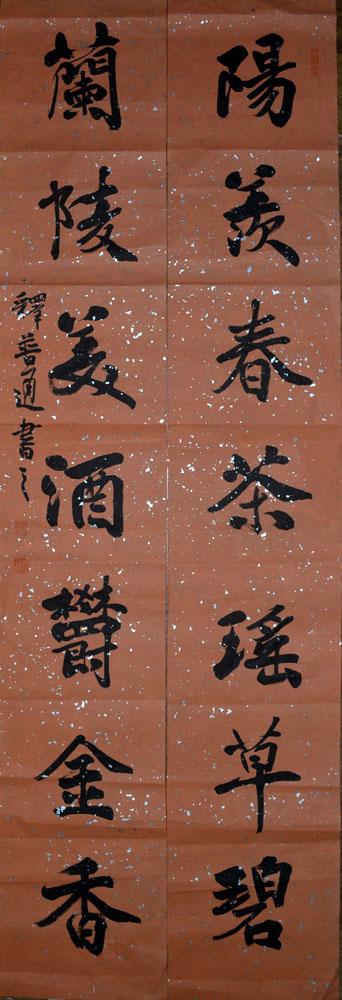 陽羨春茶瑤草碧
蘭陵美酒鬱金香
釋普通書之